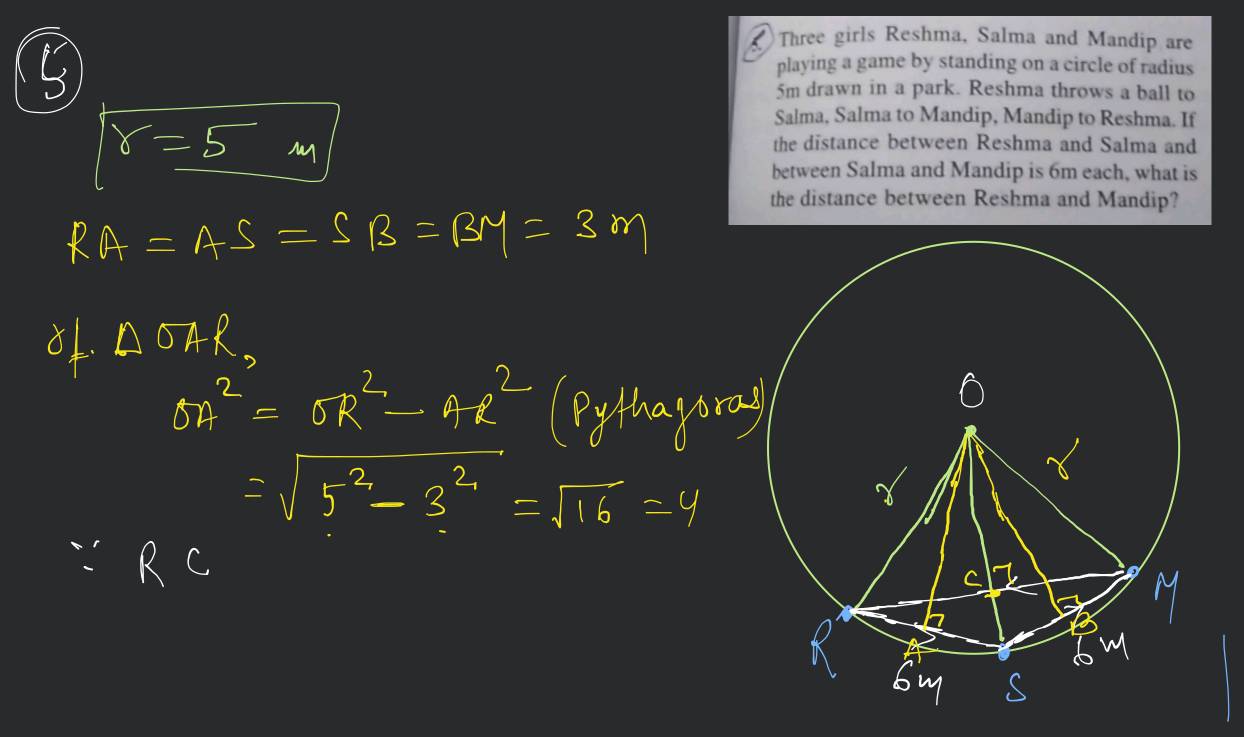 5
r = 5 m
RA = AS = SB = BM = 3 m
Three girls Reshma, Salma and Mandip are
playing a game by standing on a circle of radius
5m drawn in a park. Reshma throws a ball to
Salma, Salma to Mandip, Mandip to Reshma. If
the distance between Reshma and Salma and
between Salma and Mandip is 6m each, what is
the distance between Reshma and Mandip?
Δ OAR,
OA² = OR² - AR² (Pythagoras)
= √5² - 3² = √16 = 4
∵ RC
O
r r
C
R A S B M
6m 6m